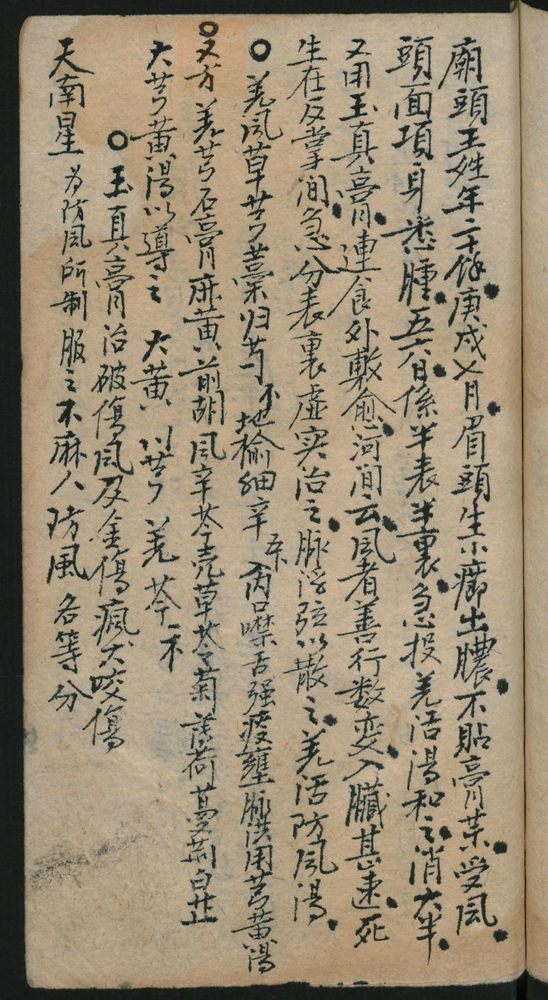 廟頭王姓年二十餘庚戌七月眉頭生小癤出膿不貼膏藥受風
頭面項身悉腫五六日係半表半裏急投羌活湯和之消大半
又用玉真膏連食外敷愈河間云風者善行数变入臟甚速死
生在反掌间急分表裏虚实治之脉浮弦以散之羌活防風湯
○羌風草芎藁归芍 地榆細辛 口噤舌强痰壅 用芎黄湯
○又方 羌芎石膏麻黄前胡風辛芩壳草苓菊薄荷蔓荆白芷
大芎黄湯以導之 大黄 川芎 羌 芩
○玉真膏治破傷風及金傷瘋犬咬傷
天南星 为防風所制服之不麻人 防風 各等分